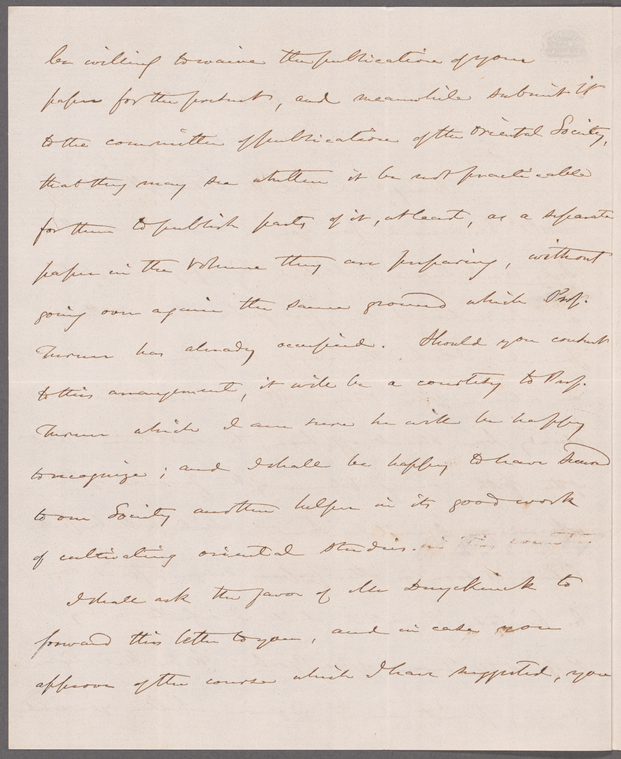 be willing to waive the publication of your
paper for the present, and meanwhile submit it
to the committee of publication of the Oriental Society,
that they may see whether it be not practicable
for them to publish parts of it, at least, as a separate
paper in the volume they are preparing, without
going over again the same ground which Prof.
Turner has already occupied. Should you consent
to this arrangement, it will be a courtesy to Prof.
Turner which I am sure he will be happy
to recognize; and I shall be happy to have
to our Society another helper in its good work
of cultivating oriental studies. in this country
I shall ask the favor of Mr Duyckinck to
forward this letter to you, and in case you
approve of the course which I have suggested, you